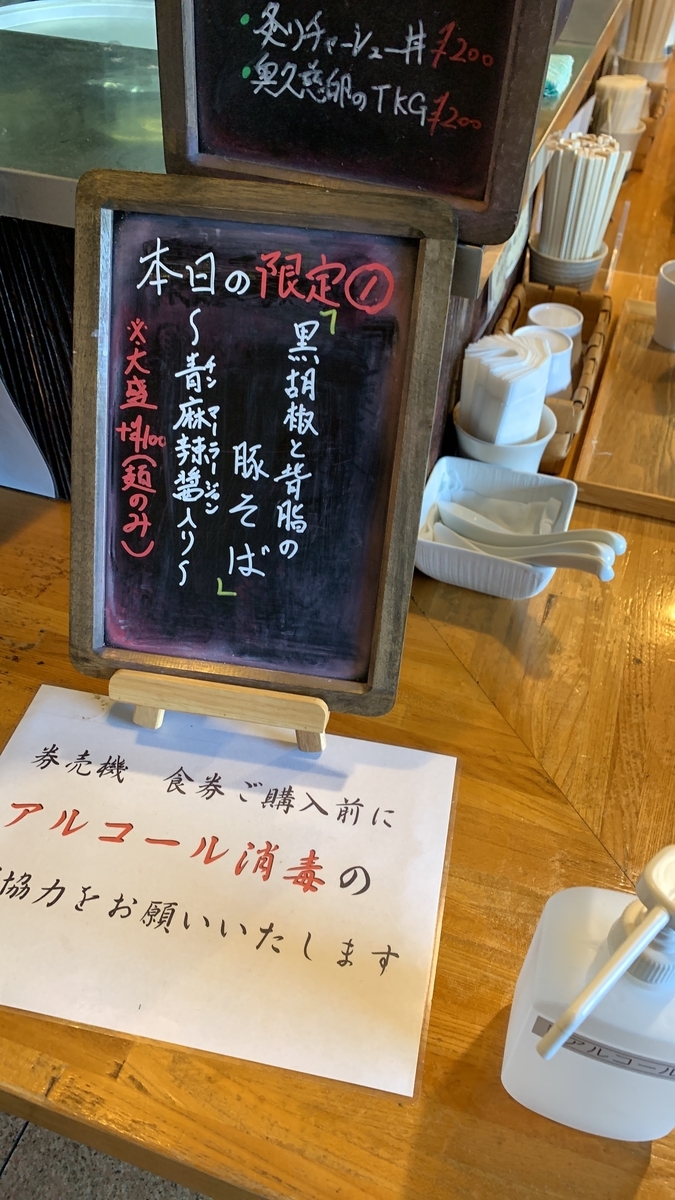 ・炙りチャーシュー丼 ¥200
・奥久慈卵のTKG ¥200
本日の限定①
「黒胡椒と背脂の
豚そば」
～青麻辣醤入り～
チンマーラージャン
※大盛+¥100(麺のみ)
券売機 食券ご購入前に
アルコール消毒の
協力をお願いいたします
アルコール